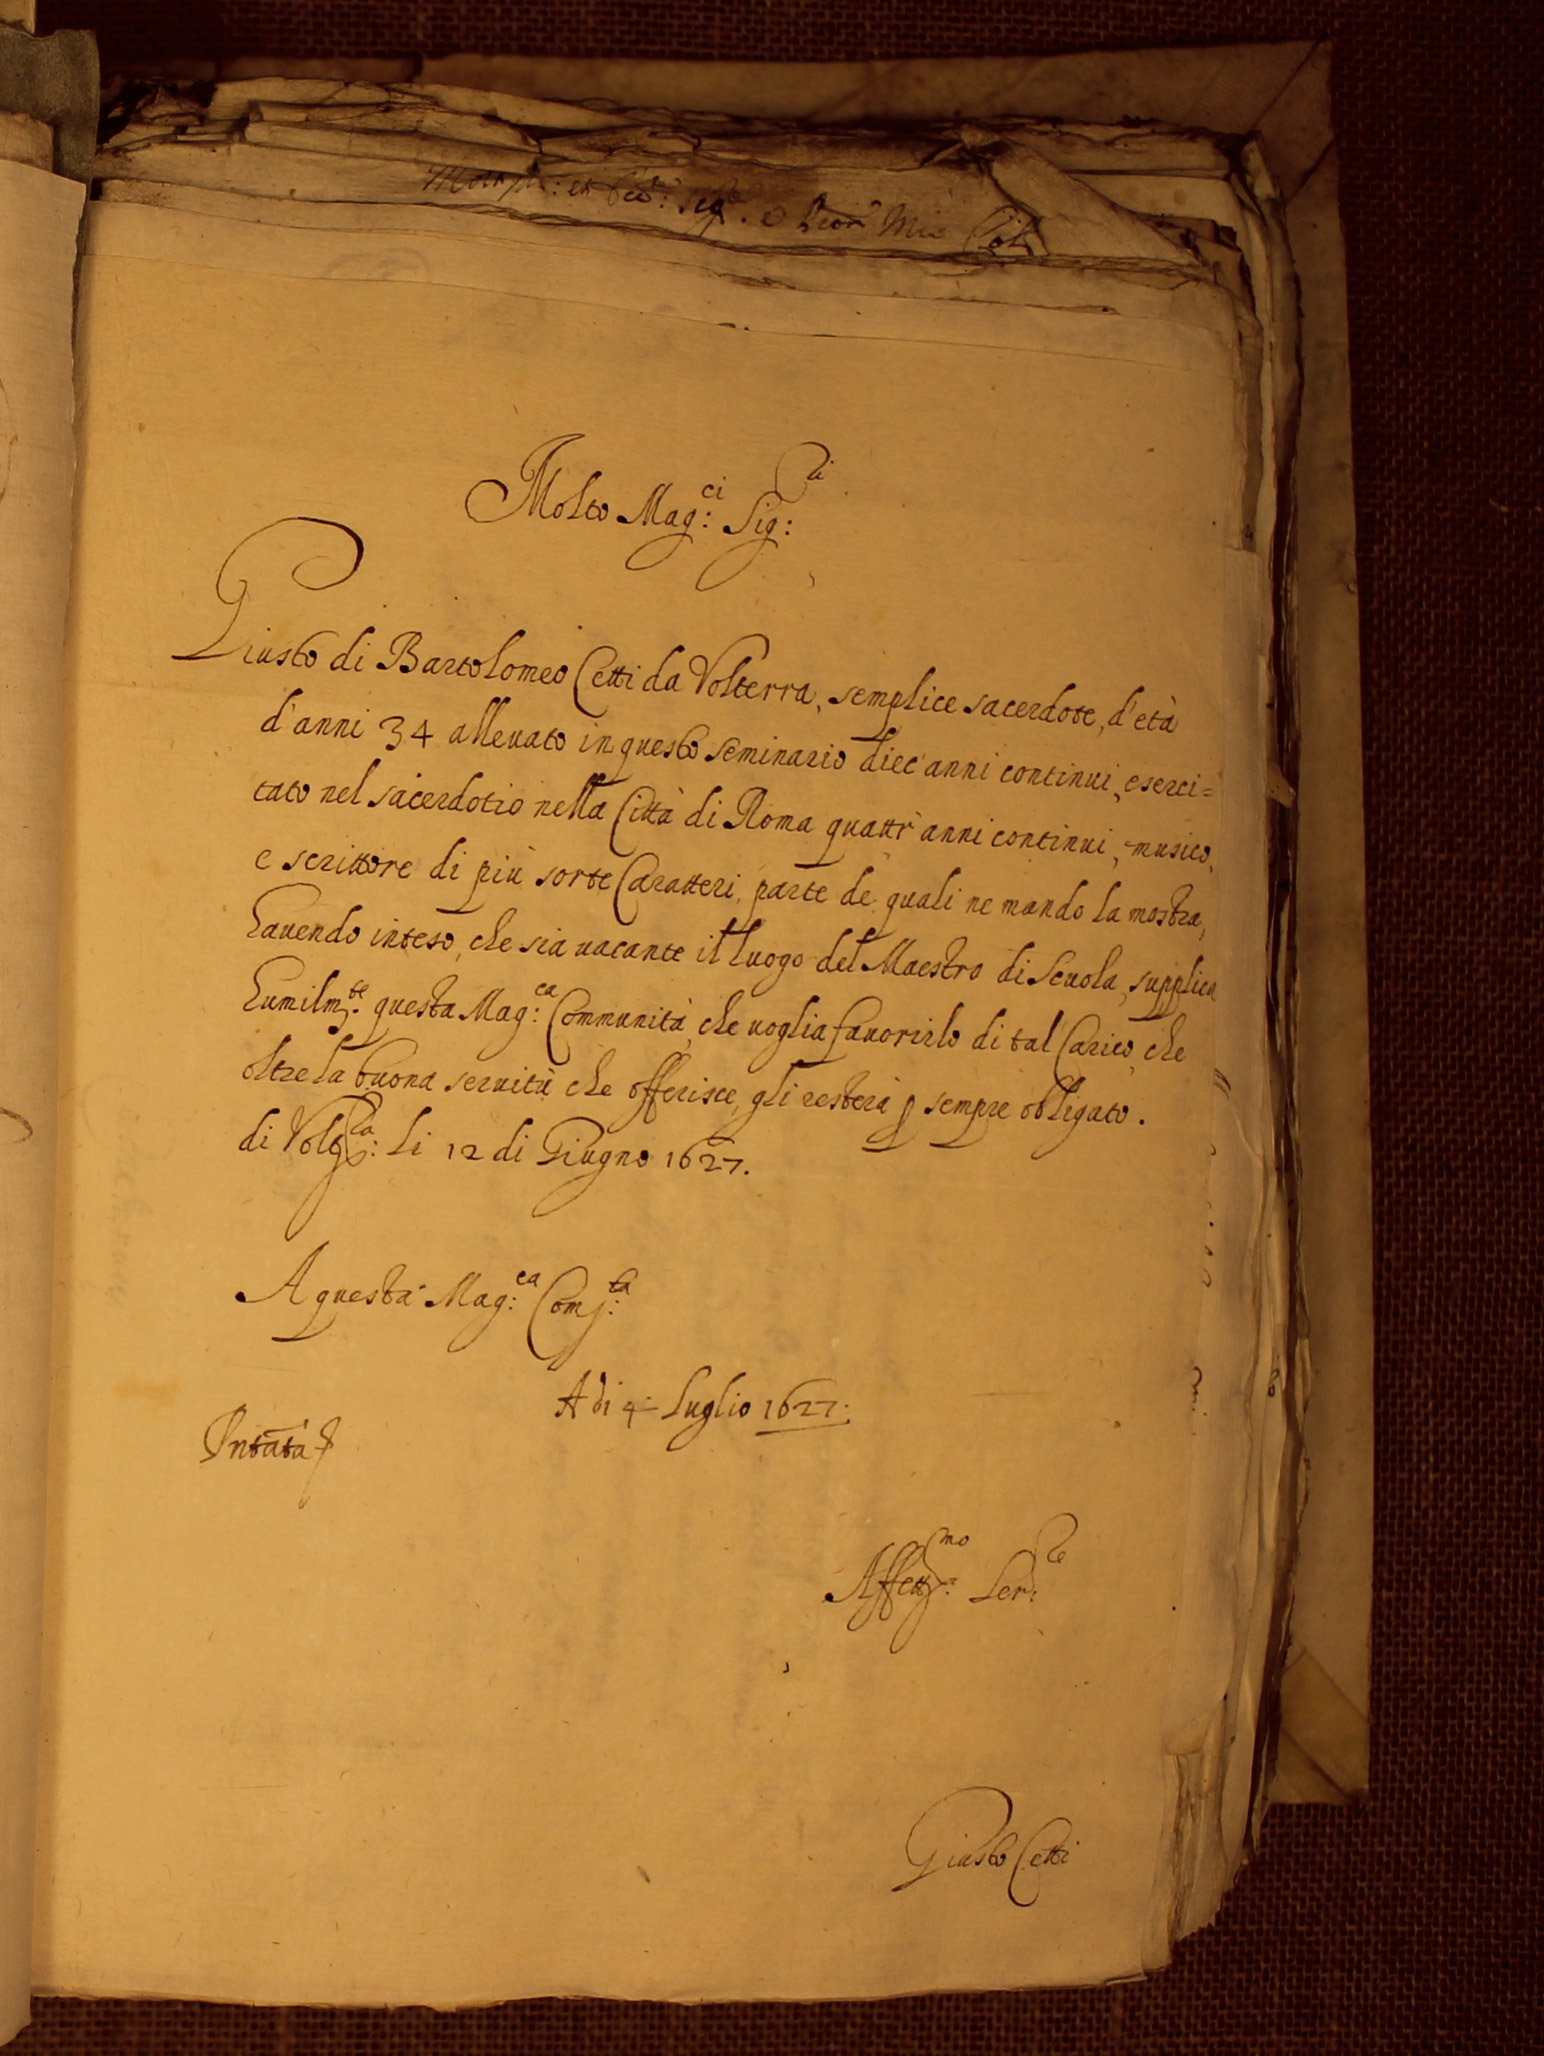 Molto Mag:ci Sig:ri
Giusto di Bartolomeo Cetti da Volterra, semplice sacerdote, d'età
d'anni 34 alleuato in questo seminario diec'anni continui, eserci=
tato nel sacerdotio nella Città di Roma quattr'anni continui, musico,
e scrittore di più sorte Caratteri, parte de quali ne mando la mostra,
hauendo inteso, che sia uacante il luogo del Maestro di Scuola, supplica
humilm.te questa Mag:ca Communità, che uoglia fauorirlo di tal Carico, che
oltre la buona seruitù che offerisce, gli resterà ꝑ sempre obligato.
di Volt:ra li 12 di Giugno 1627.
A questa Mag:ca Com:ta
A di 4 Luglio 1627.
Pntata
Affett.mo Ser:re
Giusto Cetti